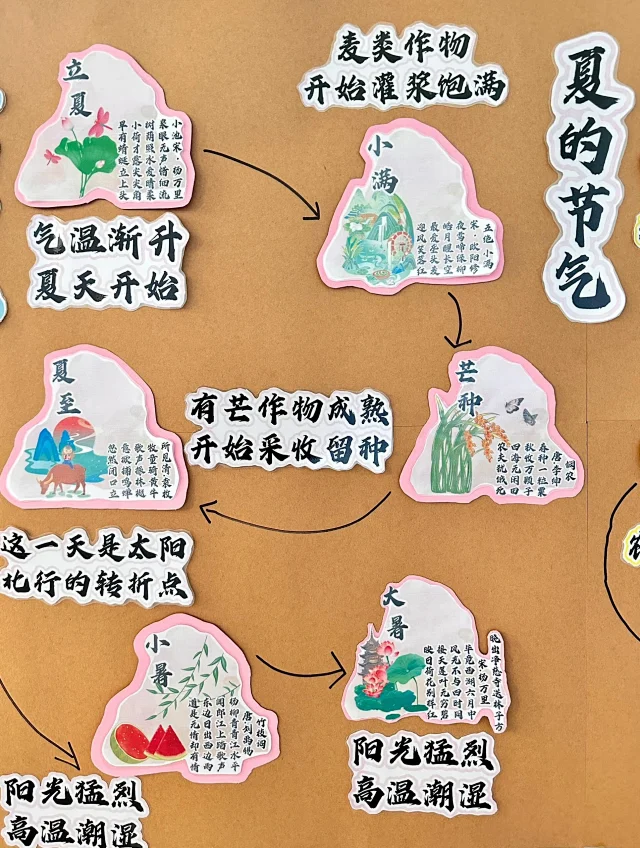 夏的节气
立夏
小池宋·杨万里
泉眼无声惜细流
树荫照水爱晴柔
小荷才露尖尖角
早有蜻蜓立上头
气温渐升
夏天开始
麦类作物
开始灌浆饱满
小满
五绝·小满
宋·欧阳修
夜莺啼绿柳
皓月醒长空
最爱垄头麦
迎风笑落红
芒种
悯农
唐·李绅
春种一粒粟
秋收万颗子
四海无闲田
农夫犹饿死
有芒作物成熟
开始采收留种
夏至
所见清·袁枚
牧童骑黄牛
歌声振林樾
意欲捕鸣蝉
忽然闭口立
这一天是太阳
北行的转折点
小暑
竹枝词
唐·刘禹锡
杨柳青青江水平
闻郎江上踏歌声
东边日出西边雨
道是无情却有情
阳光猛烈
高温潮湿
大暑
晓出净慈寺送林子方
宋·杨万里
毕竟西湖六月中
风光不与四时同
接天莲叶无穷碧
映日荷花别样红
阳光猛烈
高温潮湿